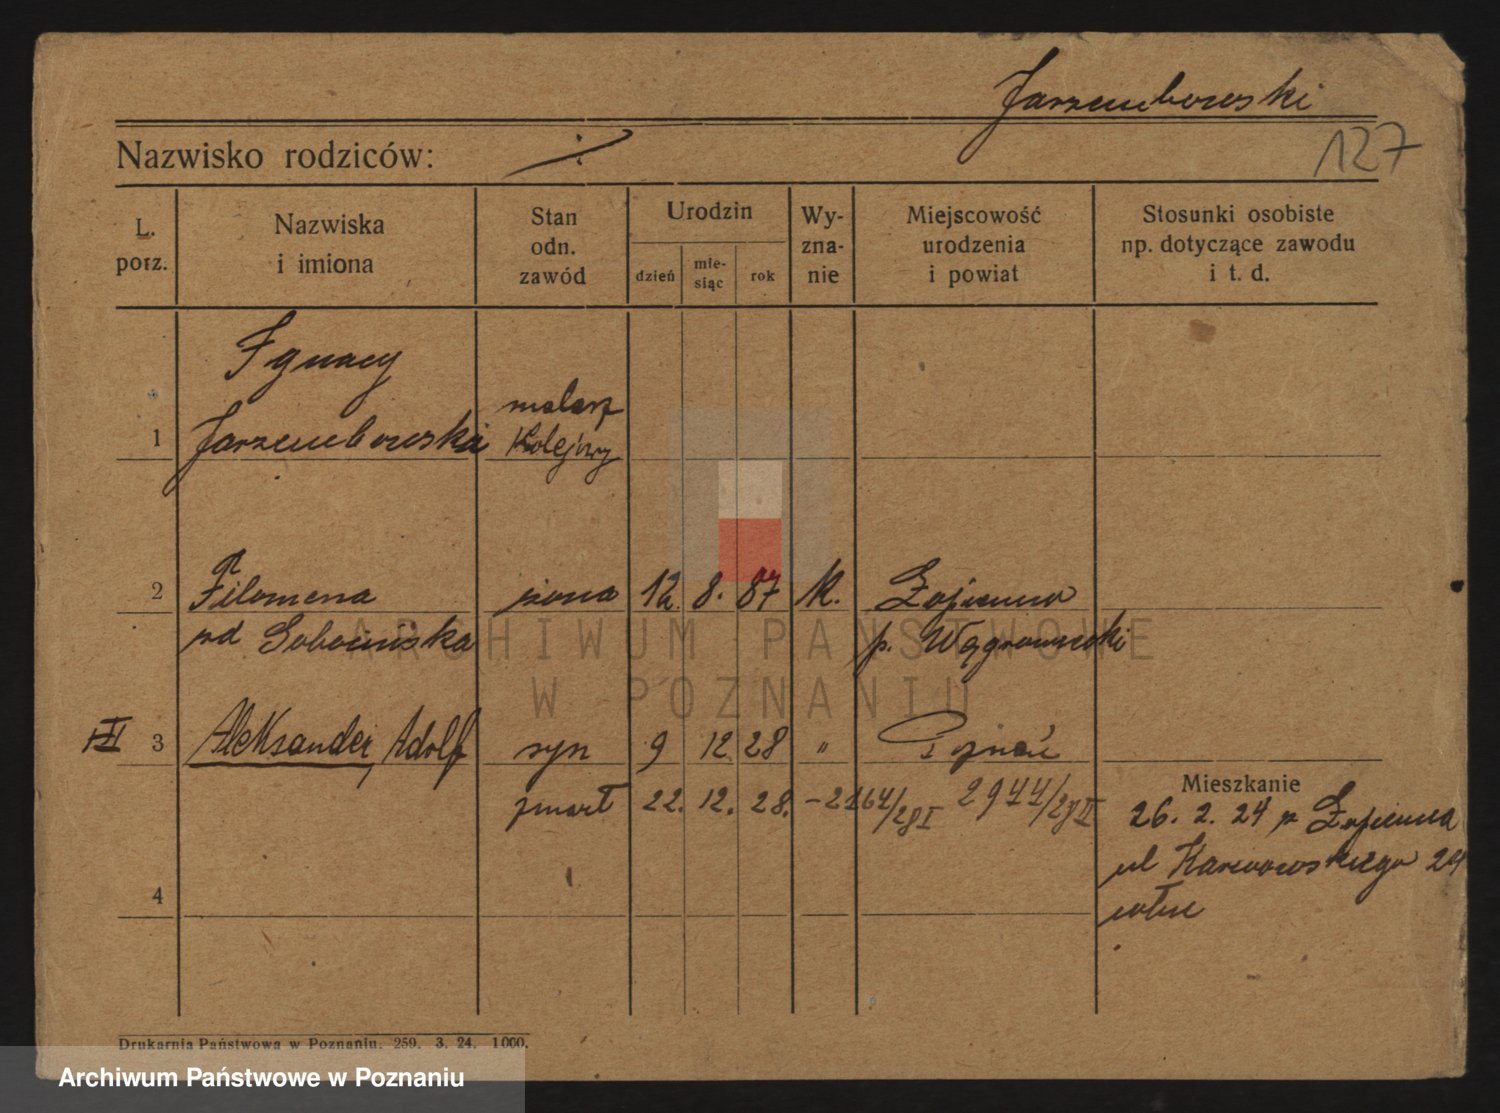 Jarzembowski
127
Nazwisko rodziców: ⁒
L. porz.
Nazwiska i imiona
Stan odn. zawód
Urodzin
dzień
mie-siąc
rok
Wy-zna-nie
Miejscowość urodzenia i powiat
Stosunki osobiste np. dotyczące zawodu i t. d.
Ignacy
malarz
1 Jarzembowski Kolejowy
2 Filomena żona 12. 8. 87 k. Łopienno
zd Sobocińska p. Wągrowiecki
III 3 Aleksander, Adolf syn 9 12 28 " Poznań
zmarł 22. 12. 28. - 2164/28 I 2944/28 II
Mieszkanie
26. 2. 24 z Łopienna
ul Karwowskiego 24
4
Drukarnia Państwowa w Poznaniu. 259. 3. 24. 1000.
ARCHIWUM PAŃSTWOWE
W POZNANIU
Archiwum Państwowe w Poznaniu